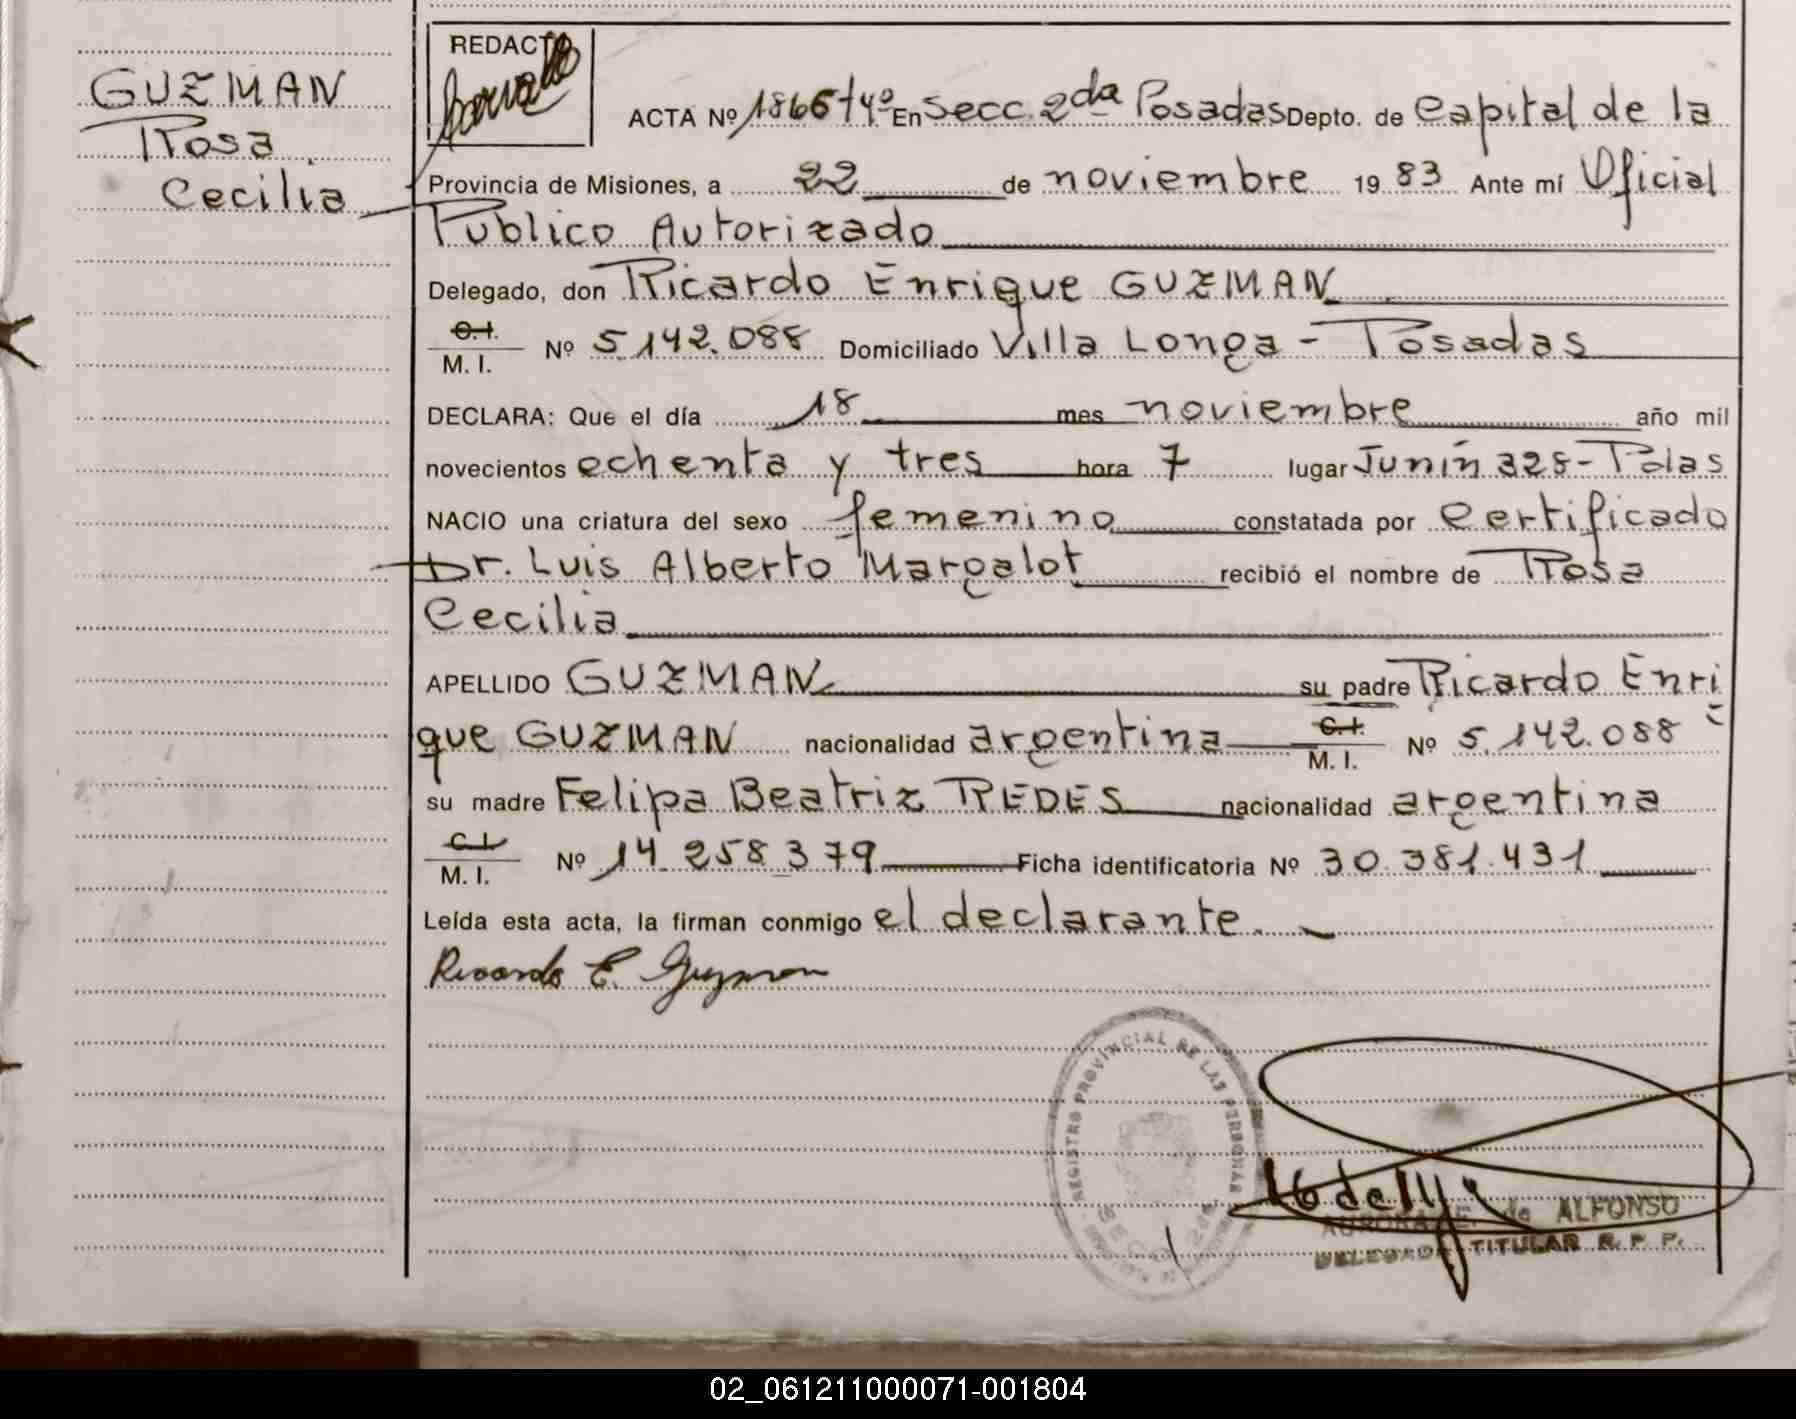 GUZMAN
Rosa
Cecilia
REDACTO
ACTA Nº 1866 T4º En Secc. 2da Posadas Depto. de Capital de la
Provincia de Misiones, a 22 de noviembre 19 83 Ante mí Oficial
Publico Autorizado
Delegado, don Ricardo Enrique GUZMAN
C.I.
M. I. Nº 5.142.088 Domiciliado Villa Longa - Posadas
DECLARA: Que el día 18 mes noviembre año mil
novecientos ochenta y tres hora 7 lugar Junín 328 - Pdas
NACIO una criatura del sexo femenino constatada por Certificado
Dr. Luis Alberto Margalot recibió el nombre de Rosa
Cecilia
APELLIDO GUZMAN su padre Ricardo Enri
que GUZMAN nacionalidad argentina C.I. M. I. Nº 5.142.088
su madre Felipa Beatriz REDES nacionalidad argentina
C I
M. I. Nº 14.258.379 Ficha identificatoria Nº 30.381.431
Leída esta acta, la firman conmigo el declarante.
Ricardo E. Guzman
REGISTRO PROVINCIAL DE LAS PERSONAS
SECC. 2da
de ALFONSO
DELEGADA TITULAR R. P. P.
02_061211000071-001804